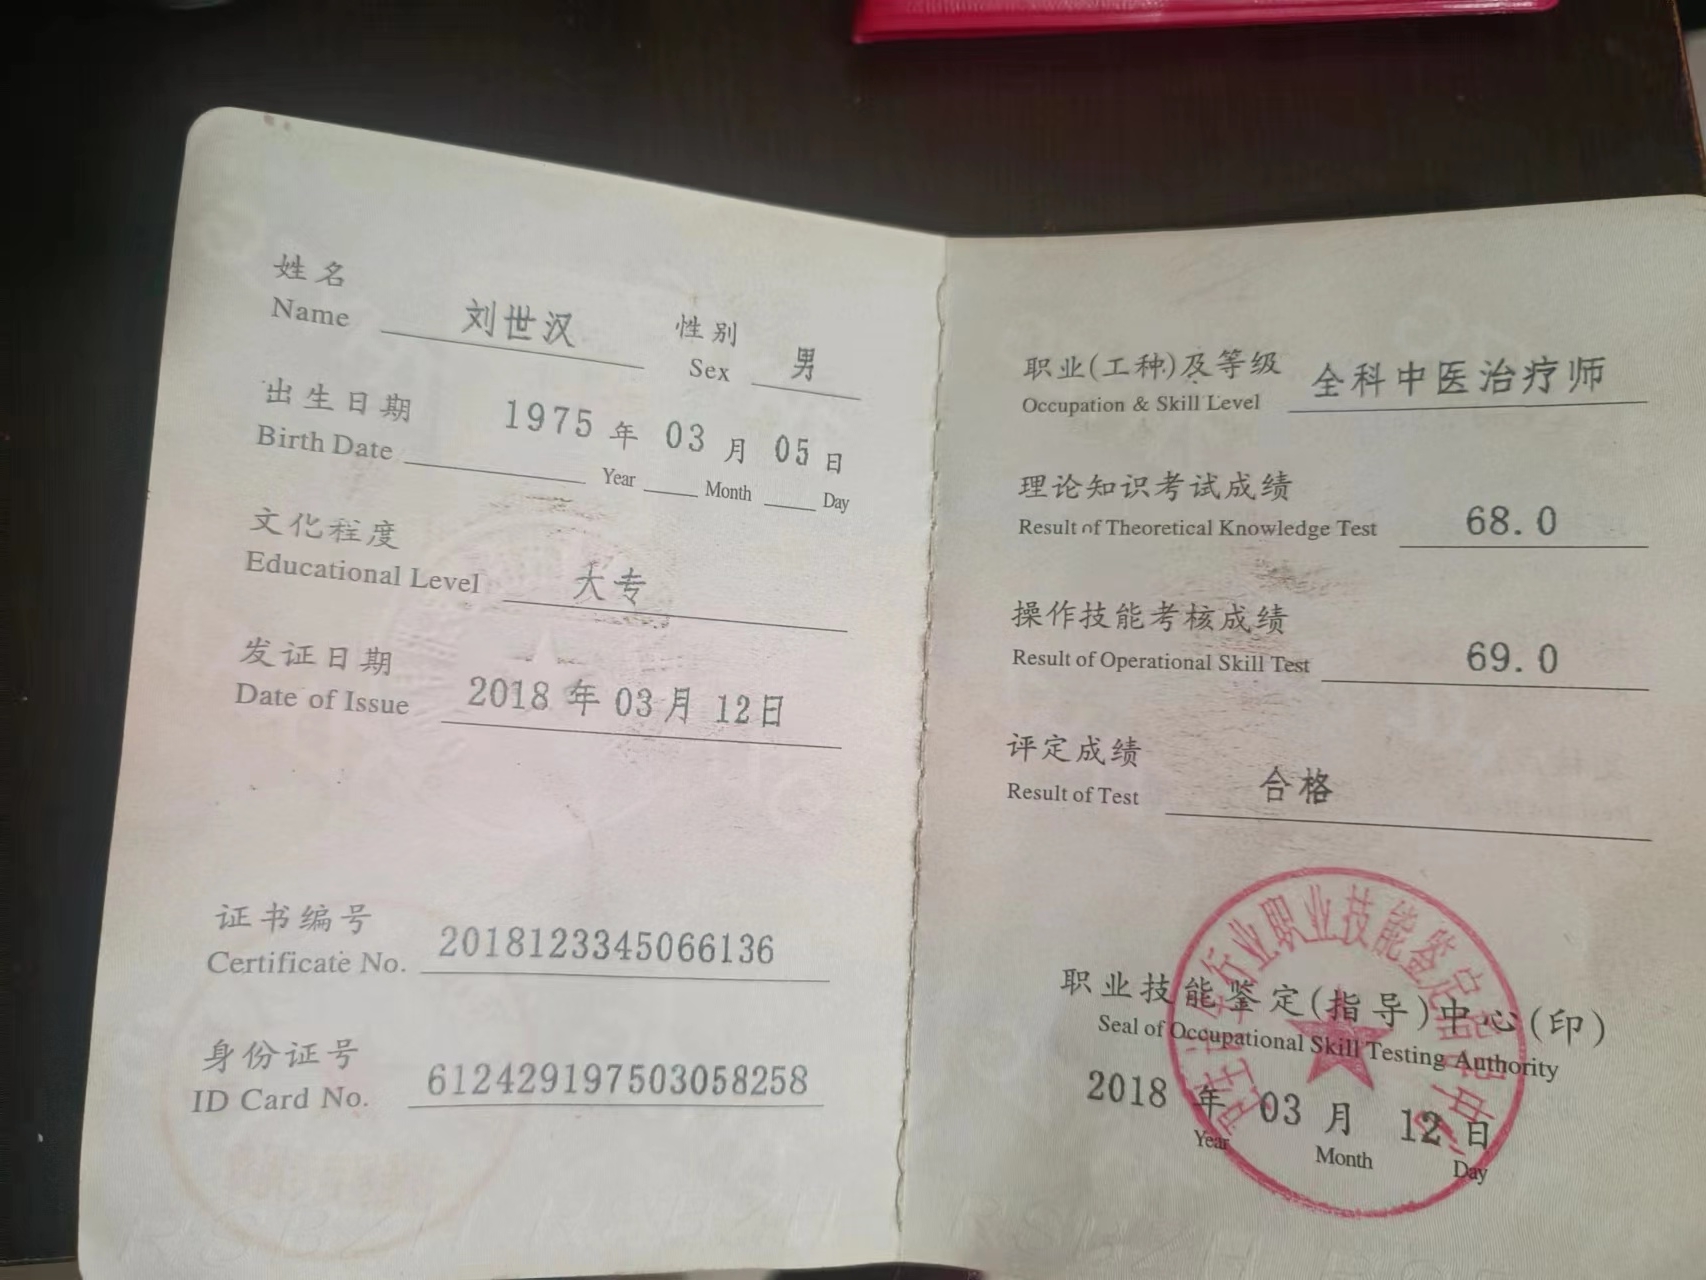 姓名 刘世汉 性别 男
Name Sex
出生日期 1975 年 03 月 05 日
Birth Date Year Month Day
文化程度
Educational Level 大专
发证日期
Date of Issue 2018 年 03 月 12日
证书编号
Certificate No. 2018123345066136
身份证号
ID Card No. 612429197503058258
职业(工种)及等级 全科中医治疗师
Occupation & Skill Level
理论知识考试成绩
Result of Theoretical Knowledge Test 68.0
操作技能考核成绩
Result of Operational Skill Test 69.0
评定成绩
Result of Test 合格
行业职业技能鉴定指导中心
职业技能鉴定(指导)中心(印)
Seal of Occupational Skill Testing Authority
2018 年 03 月 12 日
Year Month Day